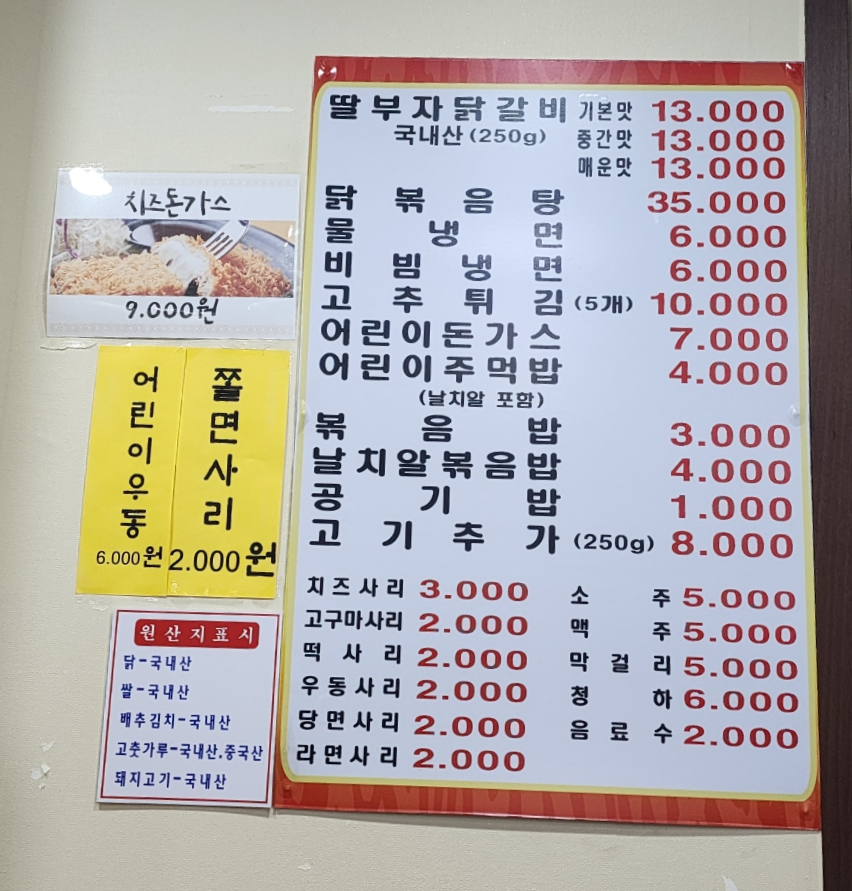 딸부자닭갈비 기본맛 13.000
국내산(250g) 중간맛 13.000
매운맛 13.000
닭볶음탕 35.000
물냉면 6.000
비빔냉면 6.000
고추튀김(5개) 10.000
어린이돈가스 7.000
어린이주먹밥 4.000
(날치알 포함)
볶음밥 3.000
날치알볶음밥 4.000
공기밥 1.000
고기추가(250g) 8.000
치즈사리 3.000
고구마사리 2.000
떡사리 2.000
우동사리 2.000
당면사리 2.000
라면사리 2.000
소주 5.000
맥주 5.000
막걸리 5.000
청하 6.000
음료수 2.000
치즈돈가스
9.000원
어린이우동
6.000원
쫄면사리
2.000원
원산지표시
닭-국내산
쌀-국내산
배추김치-국내산
고춧가루-국내산,중국산
돼지고기-국내산